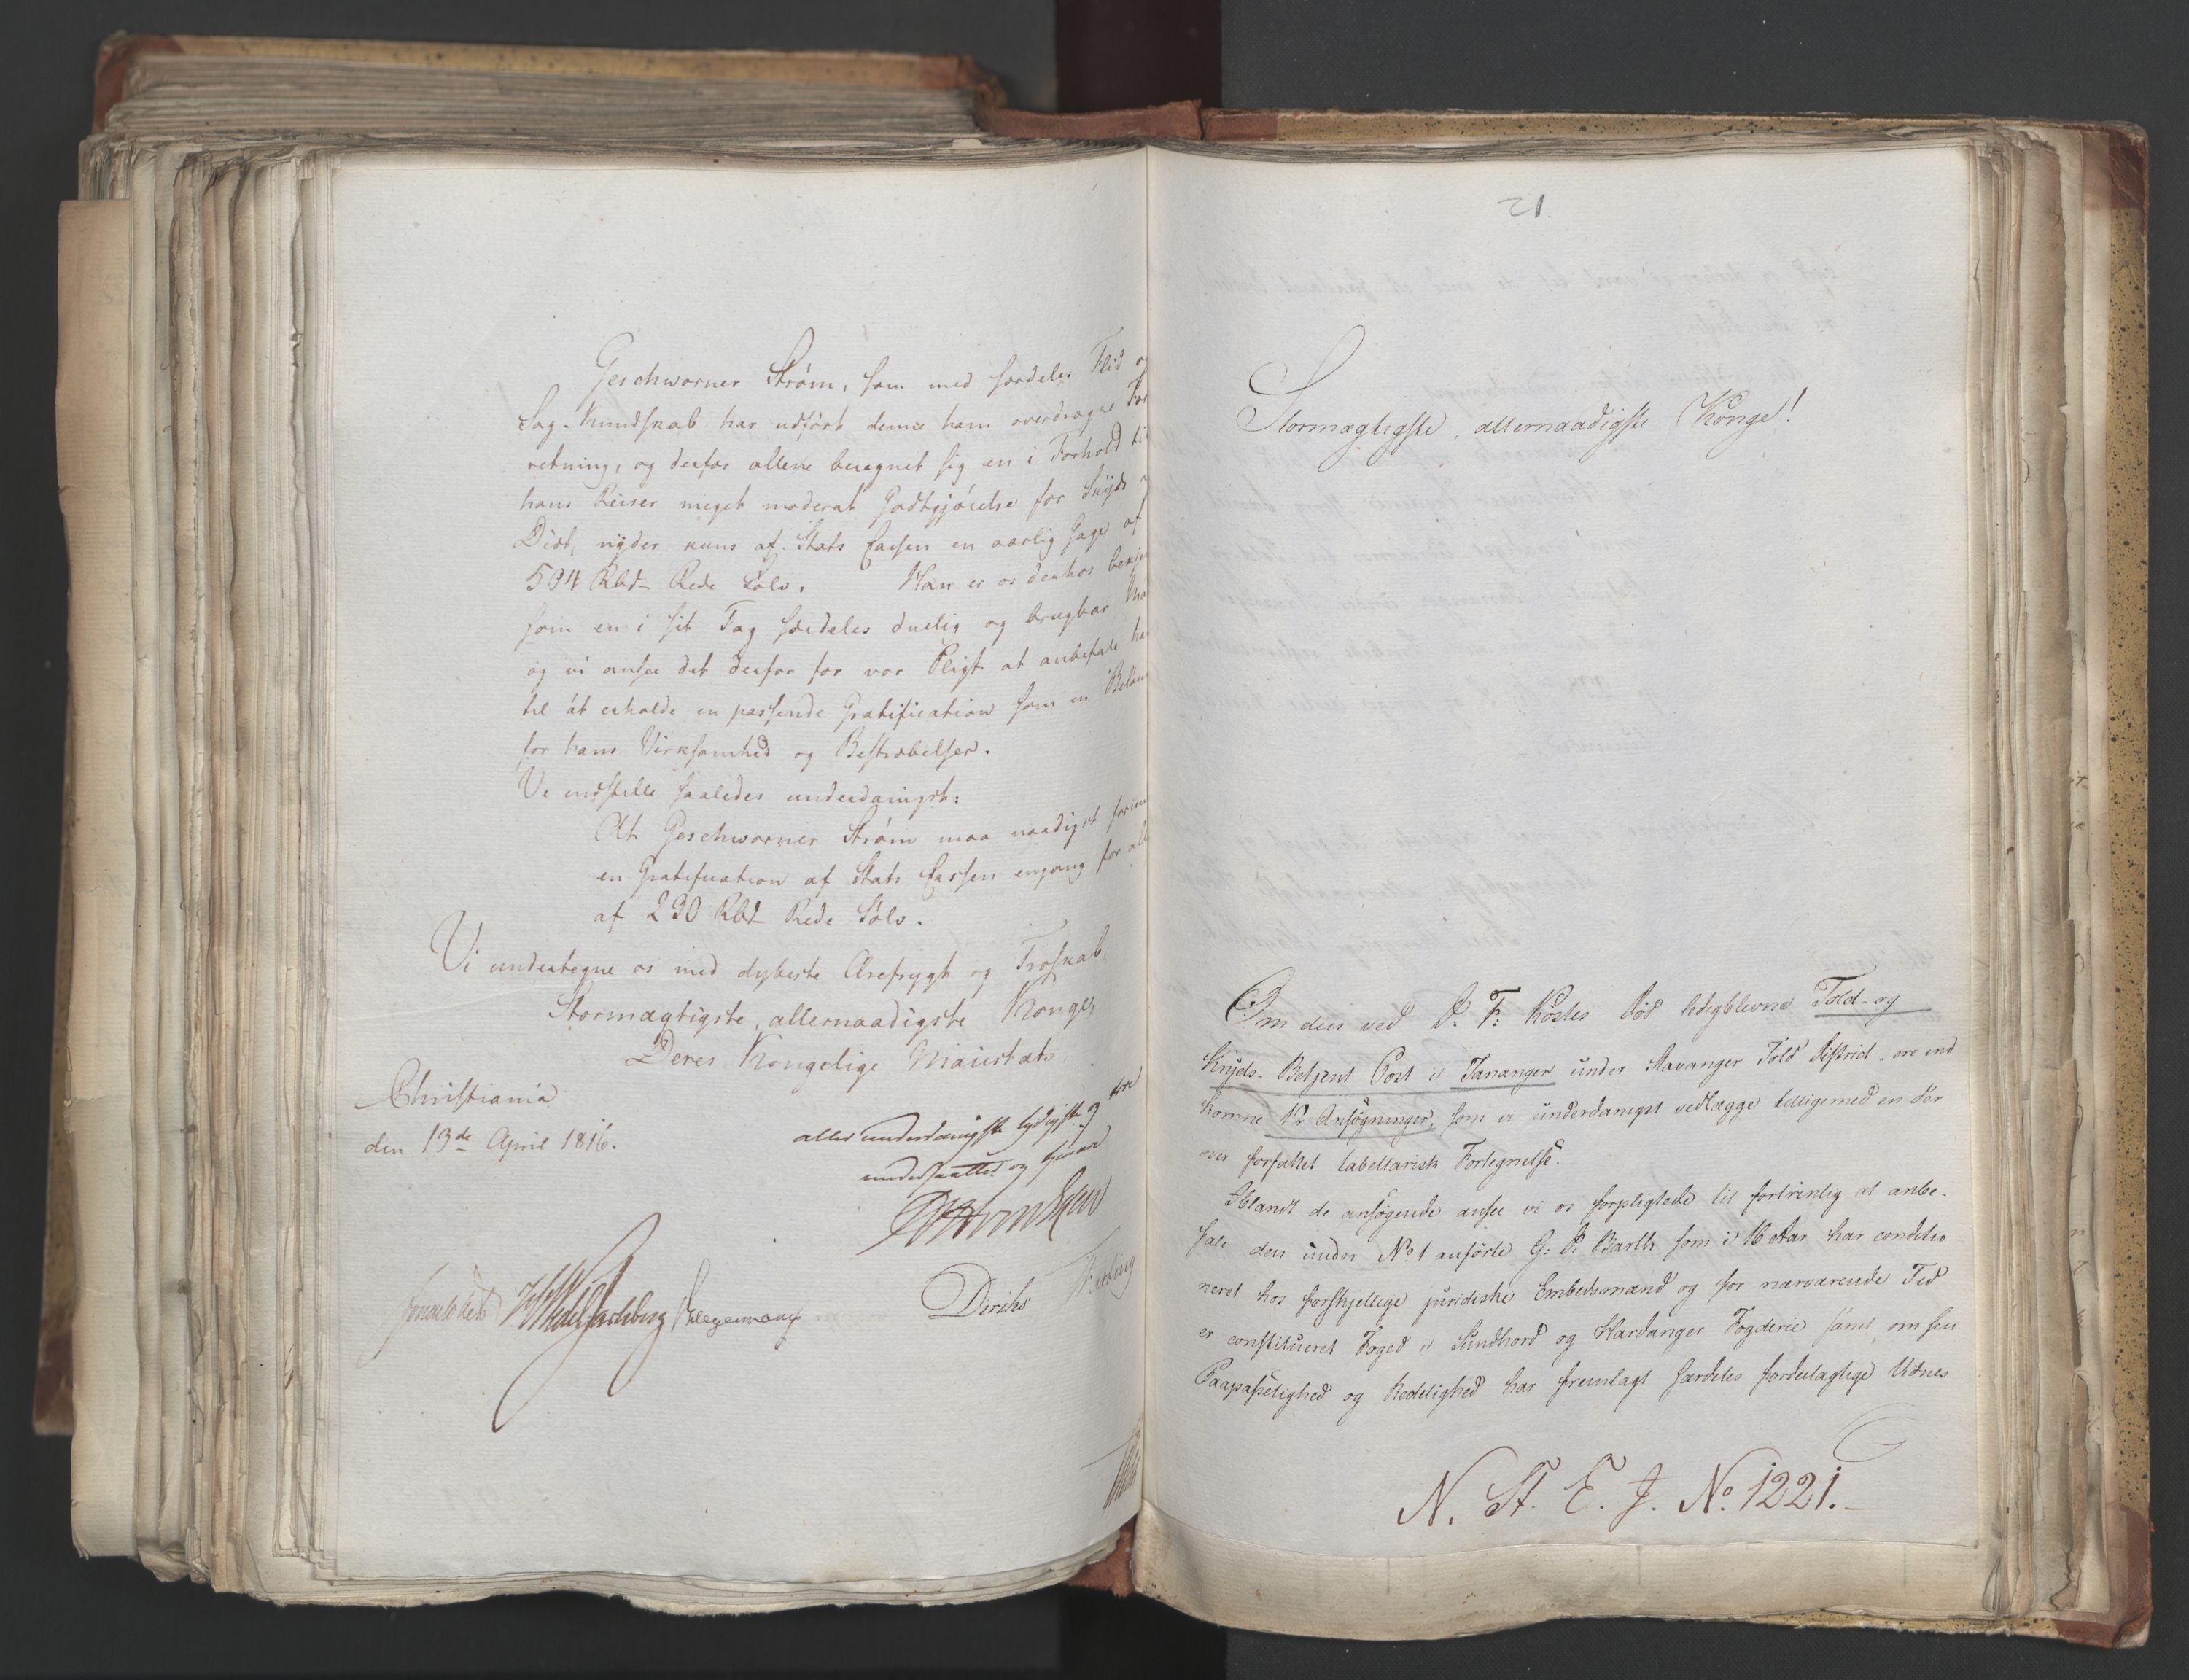 Geschworner Strøm, som med særdeles Flid og
Sag-Kundskab har udført denne ham overdragne For
retning, og derfor allene beregnet sig en i Forhold til
hans Reiser meget moderat Godtgjørelse for Skyds o
Diæt, nyder kuns af Stats Cassen en aarlig Gage af
504 Rbd Rede Sølv. Han er os derhos bekjen
som en i sit Fag særdeles duelig og brugbar Ma
og vi ansee det derfor for vor Pligt at anbefale ha
til at erholde en passende Gratification som en Beløn
for hans Virksomhed og Bestræbelser.
Vi indstille saaledes underdanigst:
At Geschworner Strøm maa naadigst forun
en Gratification af Stats Cassen engang for all
af 230 Rbd Rede Sølv.
Vi undertegne os med dybeste Ærefrygt og Troskab,
Stormægtigste, allernaadigste Konge,
Deres Kongelige Maiestæts
Christiania
den 13de April 1816.
allerunderdanigste lydigste og tro
undersaatter og tjenere
Sommerhielm HWedelJarlsberg Hegermann
Diriks
21
Stormægtigste, allernaadigste Konge!
Om den ved P. F. Kostes Død ledigblevne Told- og
Kryds-Betjent Post i Tananger under Stavanger Told District ere ind
komne 12 Ansøgninger, som vi underdanigst vedlægge tilligemed en der
over forfattet tabellarisk Fortegnelse.
Iblandt de ansøgende ansee vi os forpligtede til fortrinlig at anbe-
fale den under No 1 anførte G: P. Barth som i 16 Aar har conditio
neret hos forskjellige juridiske Embedsmænd og for nærværende Tid
er constitueret Foged i Sundhord og Hardanger Fogderie samt om sin
Paapasselighed og Redelighed har fremlagt særdeles fordeelagtige Vidnes
N. St. E. J. No 1221.